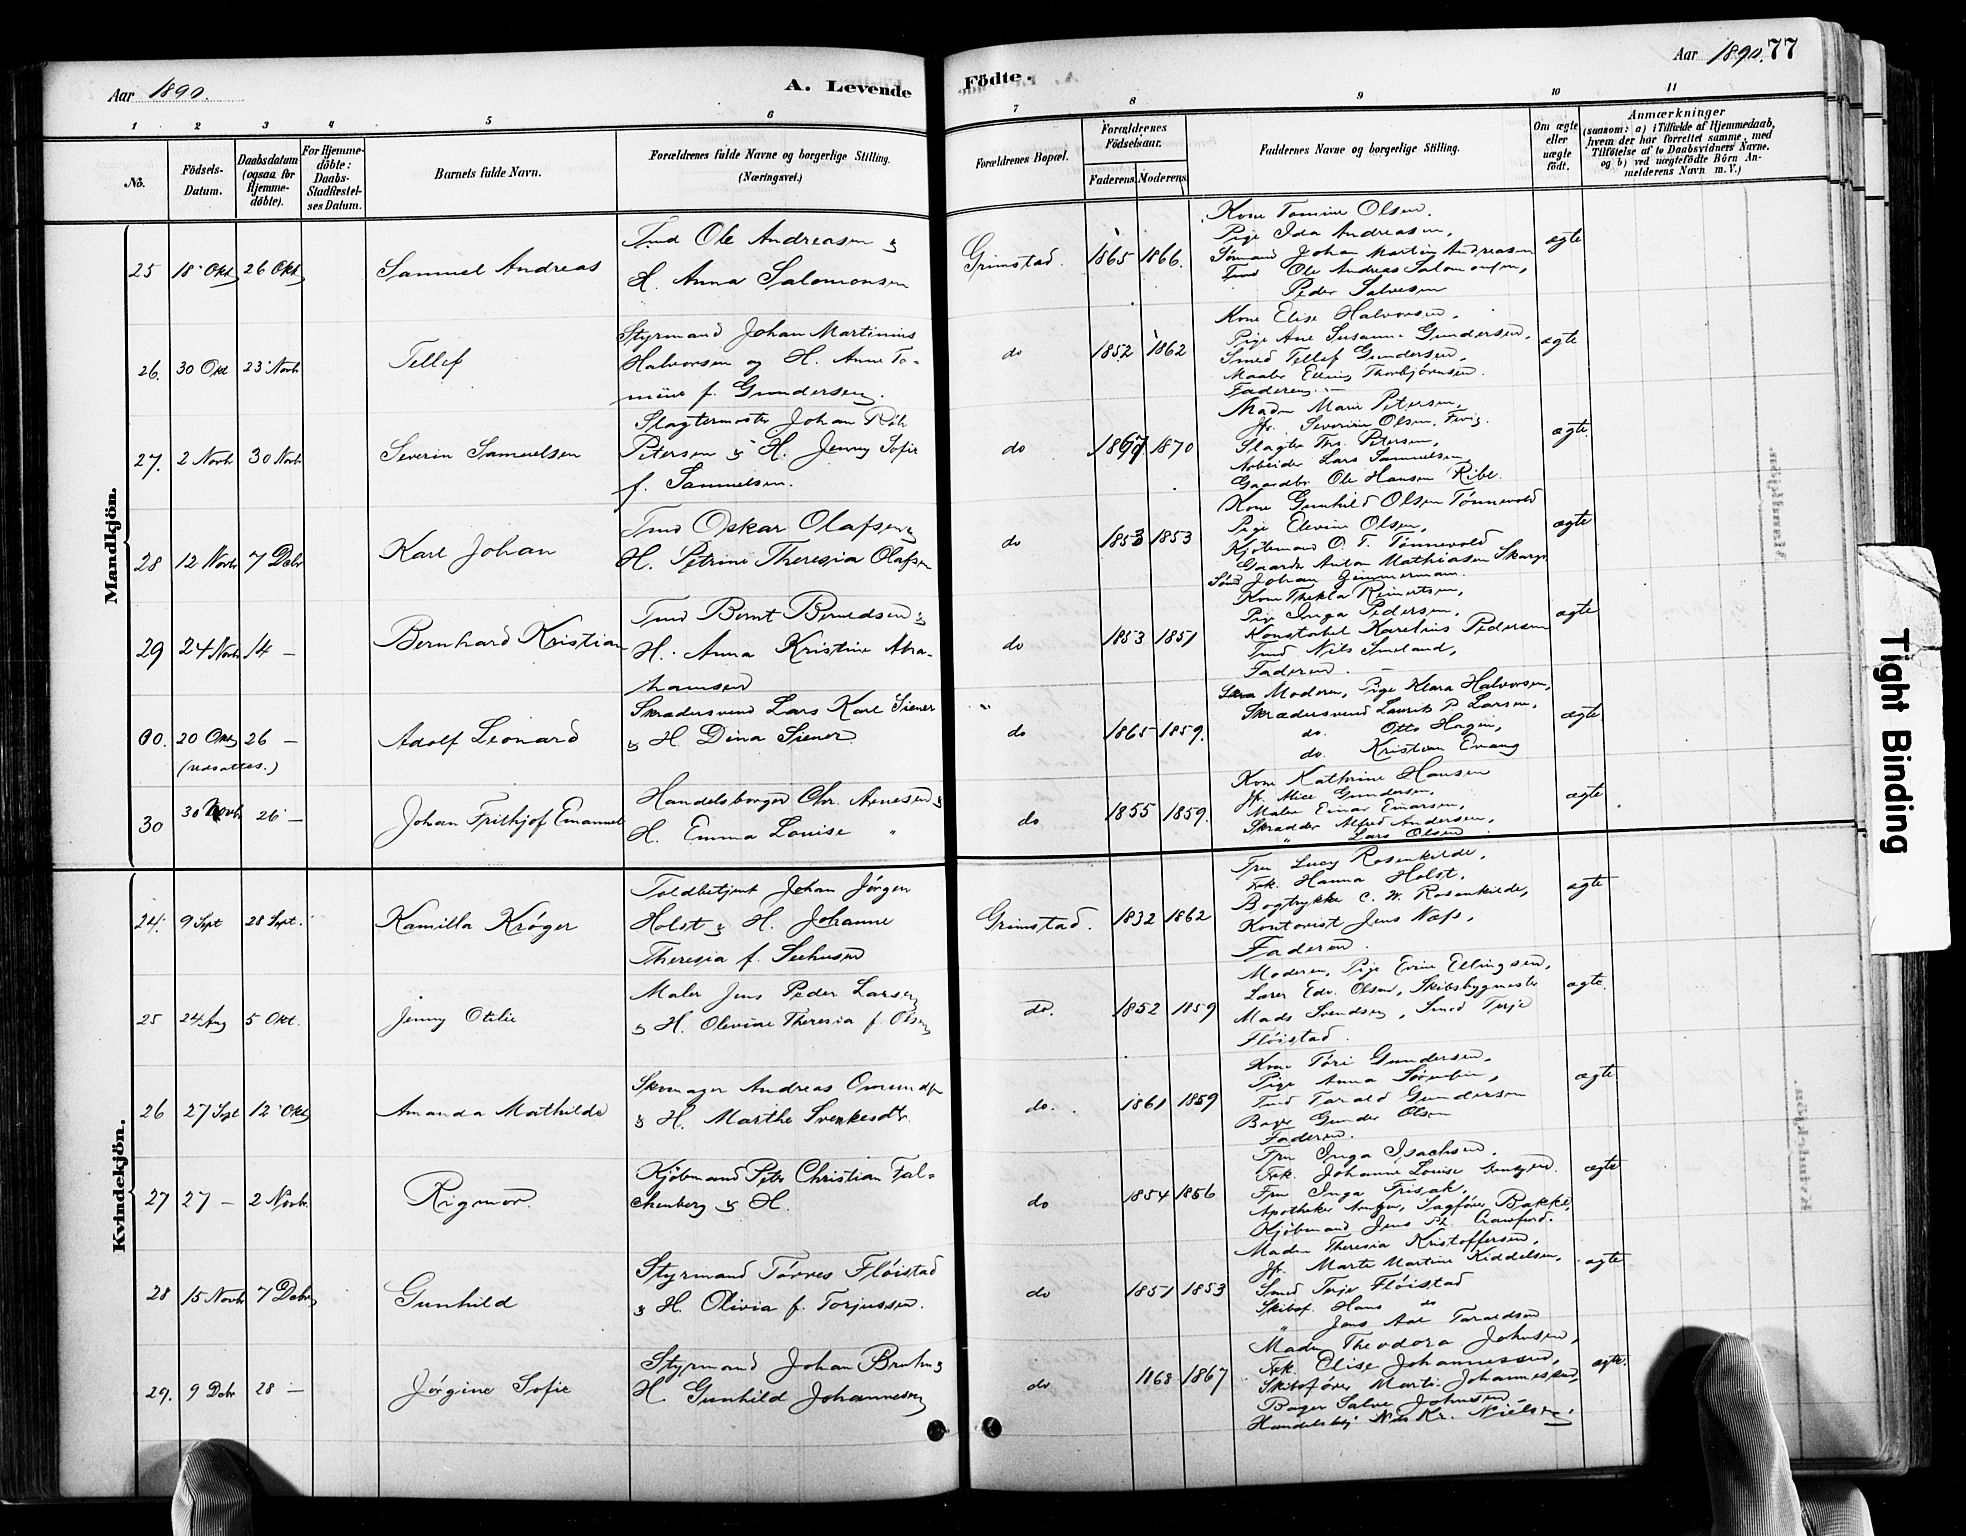 Aar 1890.
A. Levende
Födte.
Aar 1890. 77
1 2 3 4 5 6 7 8 9 10 11
No.
Födsels-
Datum.
Daabsdatum
(ogsaa for
Hjemme-
döbte).
For Hjemme-
döbte:
Daabs-
Stadfæstel-
ses Datum.
Barnets fulde Navn.
Forældrenes fulde Navne og borgerlige Stilling.
(Næringsvei.)
Forældrenes Bopæl.
Forældrenes
Födselsaar.
Faderens. Moderens.
Faddernes Navne og borgerlige Stilling.
Om ægte
eller
uægte
födt.
Anmærkninger
(saasom: a) i Tilfælde af Hjemmedaab,
hvem der har forrettet samme, med
Tilföielse af to Daabsvidners Navne,
og b) ved uægtefödte Börn An-
melderens Navn m. V.)
Mandkjön.
25 18 Okt 26 Okt Samuel Andreas
Tmd Ole Andreasen &
H. Anna Salomonsen
Grimstad. 1865 1866.
Kone Tomine Olsen,
Pige Ida Andreasen,
Sømand Johan Martin Andreasen
Tmd Ole Andreas Salomonsen,
Peder Salvesen
ægte
26. 30 Okt 23 Novbr Tellef
Styrmand Johan Martinius
Halvorsen og H. Anne To-
mine f. Gundersen.
do 1852 1862
Kone Elise Halvorsen,
Pige Ane Susanne Gundersen,
Smed Tellef Gundersen,
Maaler Elling Thorbjørnsen.
Faderen.
ægte
27. 2 Novbr 30 Novbr Severin Samuelsen
Slagtermester Johan
Petersen & H. Jenny Sofie
f. Samuelsen.
do 1867 1870
Madm Marie Petersen,
Jfr. Severine Olsen, Fevig.
Slagter Ths. Petersen,
Arbeider Lars Samuelsen,
Gaardbr. Ole Hansen Ribe.
ægte
28 12 Novbr 7 Decbr Karl Johan
Tmd Oskar Olafsen &
H. Petrine Theresia Olafsen
do 1853 1853
Kone Gunhild Olsen Tønnevold
Pige Elevine Olsen,
Kjöbmand O. T. Tønnevold
Gaardbr Anton Mathiasen
Johan Zimmermann.
ægte
29 24 Novbr 14 — Bernhard Kristian
Tmd Bernt Berntsen &
H. Anna Kristine Abra-
hamsen
do 1853 1851
Kone Thekla Reinertsen,
Pige Inga Pedersen,
Konstabel Karelius Pedersen
Tmd Nils Smeland,
Faderen.
ægte
00. 20 Okt 26 — Adolf Leonard
(udsattes.)
Skrædersvend Lars Karl Siener
& H Dina Siener.
do 1865 1859.
Moderen, Pige Klara Halvorsen,
Skrædersvend Laurits P. Larsen,
do. Otto Hagen,
do Kristian Evang
ægte
30 30 Novbr 26 — Johan Frithjof Emanuel
Handelsborger Chr. Arnesen &
H. Emma Louise "
do 1855 1859.
Kone Kathrine Hansen
Jfr. Alice Gundersen,
Maler Einar Einarsen,
Skrædder Alfred Andersen,
" Lars Olsen
ægte
Kvindekjön.
24. 9 Sept 28 Sept. Kamilla Krøger
Toldbetjent Johan Jørgen
Holst & H. Johanne
Theresia f. Seehusen
Grimstad. 1832 1862
Fru Lucy Rosenkilde,
Frk. Hanna Holst,
Bogtrykker C. W. Rosenkilde,
Kontorist Jens Næss,
Faderen.
ægte
25 24 Aug 5 Okt. Jenny Otilie
Maler Jens Peder Larsen
& H. Olevine Theresia f. Olsen
do. 1852 1859
Moderen, Pige Evine Ellingsen,
Lærer Edv. Olsen, Skibsbygmester
Mads Svendsen, Smed Terje
Fløistad.
ægte.
26 27 Sept 12 Okt Amanda Mathilde
Skomager Andreas Omundsen
& H. Marthe Svenkesdtr.
do. 1861 1859
Kone Tøri Gundersen,
Pige Anna Sørensen,
Tmd Tarald Gundersen
Bager Gunder Olsen
Faderen.
ægte
27 27 — 2 Novbr. Rigmor.
Kjöbmand Peter Christian Fal-
chenberg & H.
do 1854 1856
Fru Inga Isachsen.
Frk. Johanne Louise
Fru Inga Frisak,
Apotheker Arntzen, Sagfører Bakke,
Kjöbmand Jens P. Crawfurd.
ægte
28 15 Novbr 7 Decbr Gunhild
Styrmand Tørres Fløistad
& H. Olivia f. Torjussen.
do 1851 1853
Madm Theresia Kristoffersen,
Jfr. Marte Martine Kiddelsen,
Smed Terje Fløistad
Skibsf. Hans do
" Jens Aal Taraldsen
ægte
29. 9 Decbr 28 — Jørgine Sofie
Styrmand Johan Bruhn &
H. Gunhild Johannesen
do 1868 1867
Madm Theodora Johnsen,
Frk. Elise Johannessen,
Skibsfører Martin Johannessen,
Bager Salve Johnsen
Handelsbetj Nils Kr. Nielsen.
ægte.
Tight Binding